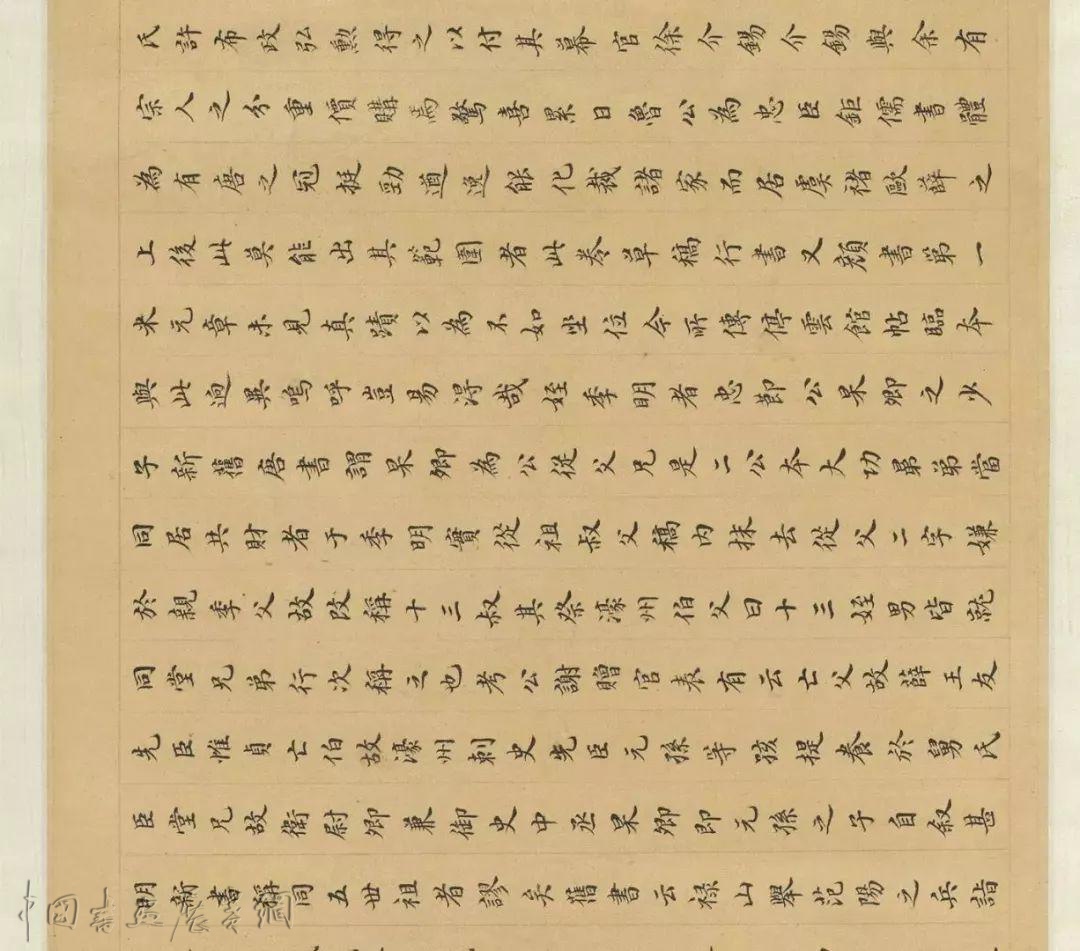 氏許布政弘勲得之以付其幕官徐介錫介錫與余有
宗人之分重價購焉驚喜累日魯公為忠臣鉅儒書體
為有唐之冠挺勁遒逸能化裁諸家而居虞褚歐薛之
上後此莫能出其範圍者此卷草稿行書又顏書第一
米元章未見真蹟以為不如坐位今所傳停雲館帖臨本
與此迥異嗚呼豈易得哉姪季明者忠節公杲卿之少
子新舊唐書謂杲卿為公從父兄是二公本大功昆弟當
同居共財者于季明實從祖叔父稿內抹去從父二字嫌
於親季父故改稱十三叔其祭濠州伯父曰十三姪男皆就
同堂兄弟行次稱之也考公謝贈官表有云亡父故薛王友
先臣惟貞亡伯故濠州刺史先臣元孫等孩提養於舅氏
臣堂兄故衛尉卿兼御史中丞杲卿即元孫之子自叙甚
明新書稱同五世祖者謬矣舊書云祿山舉范陽之兵詣